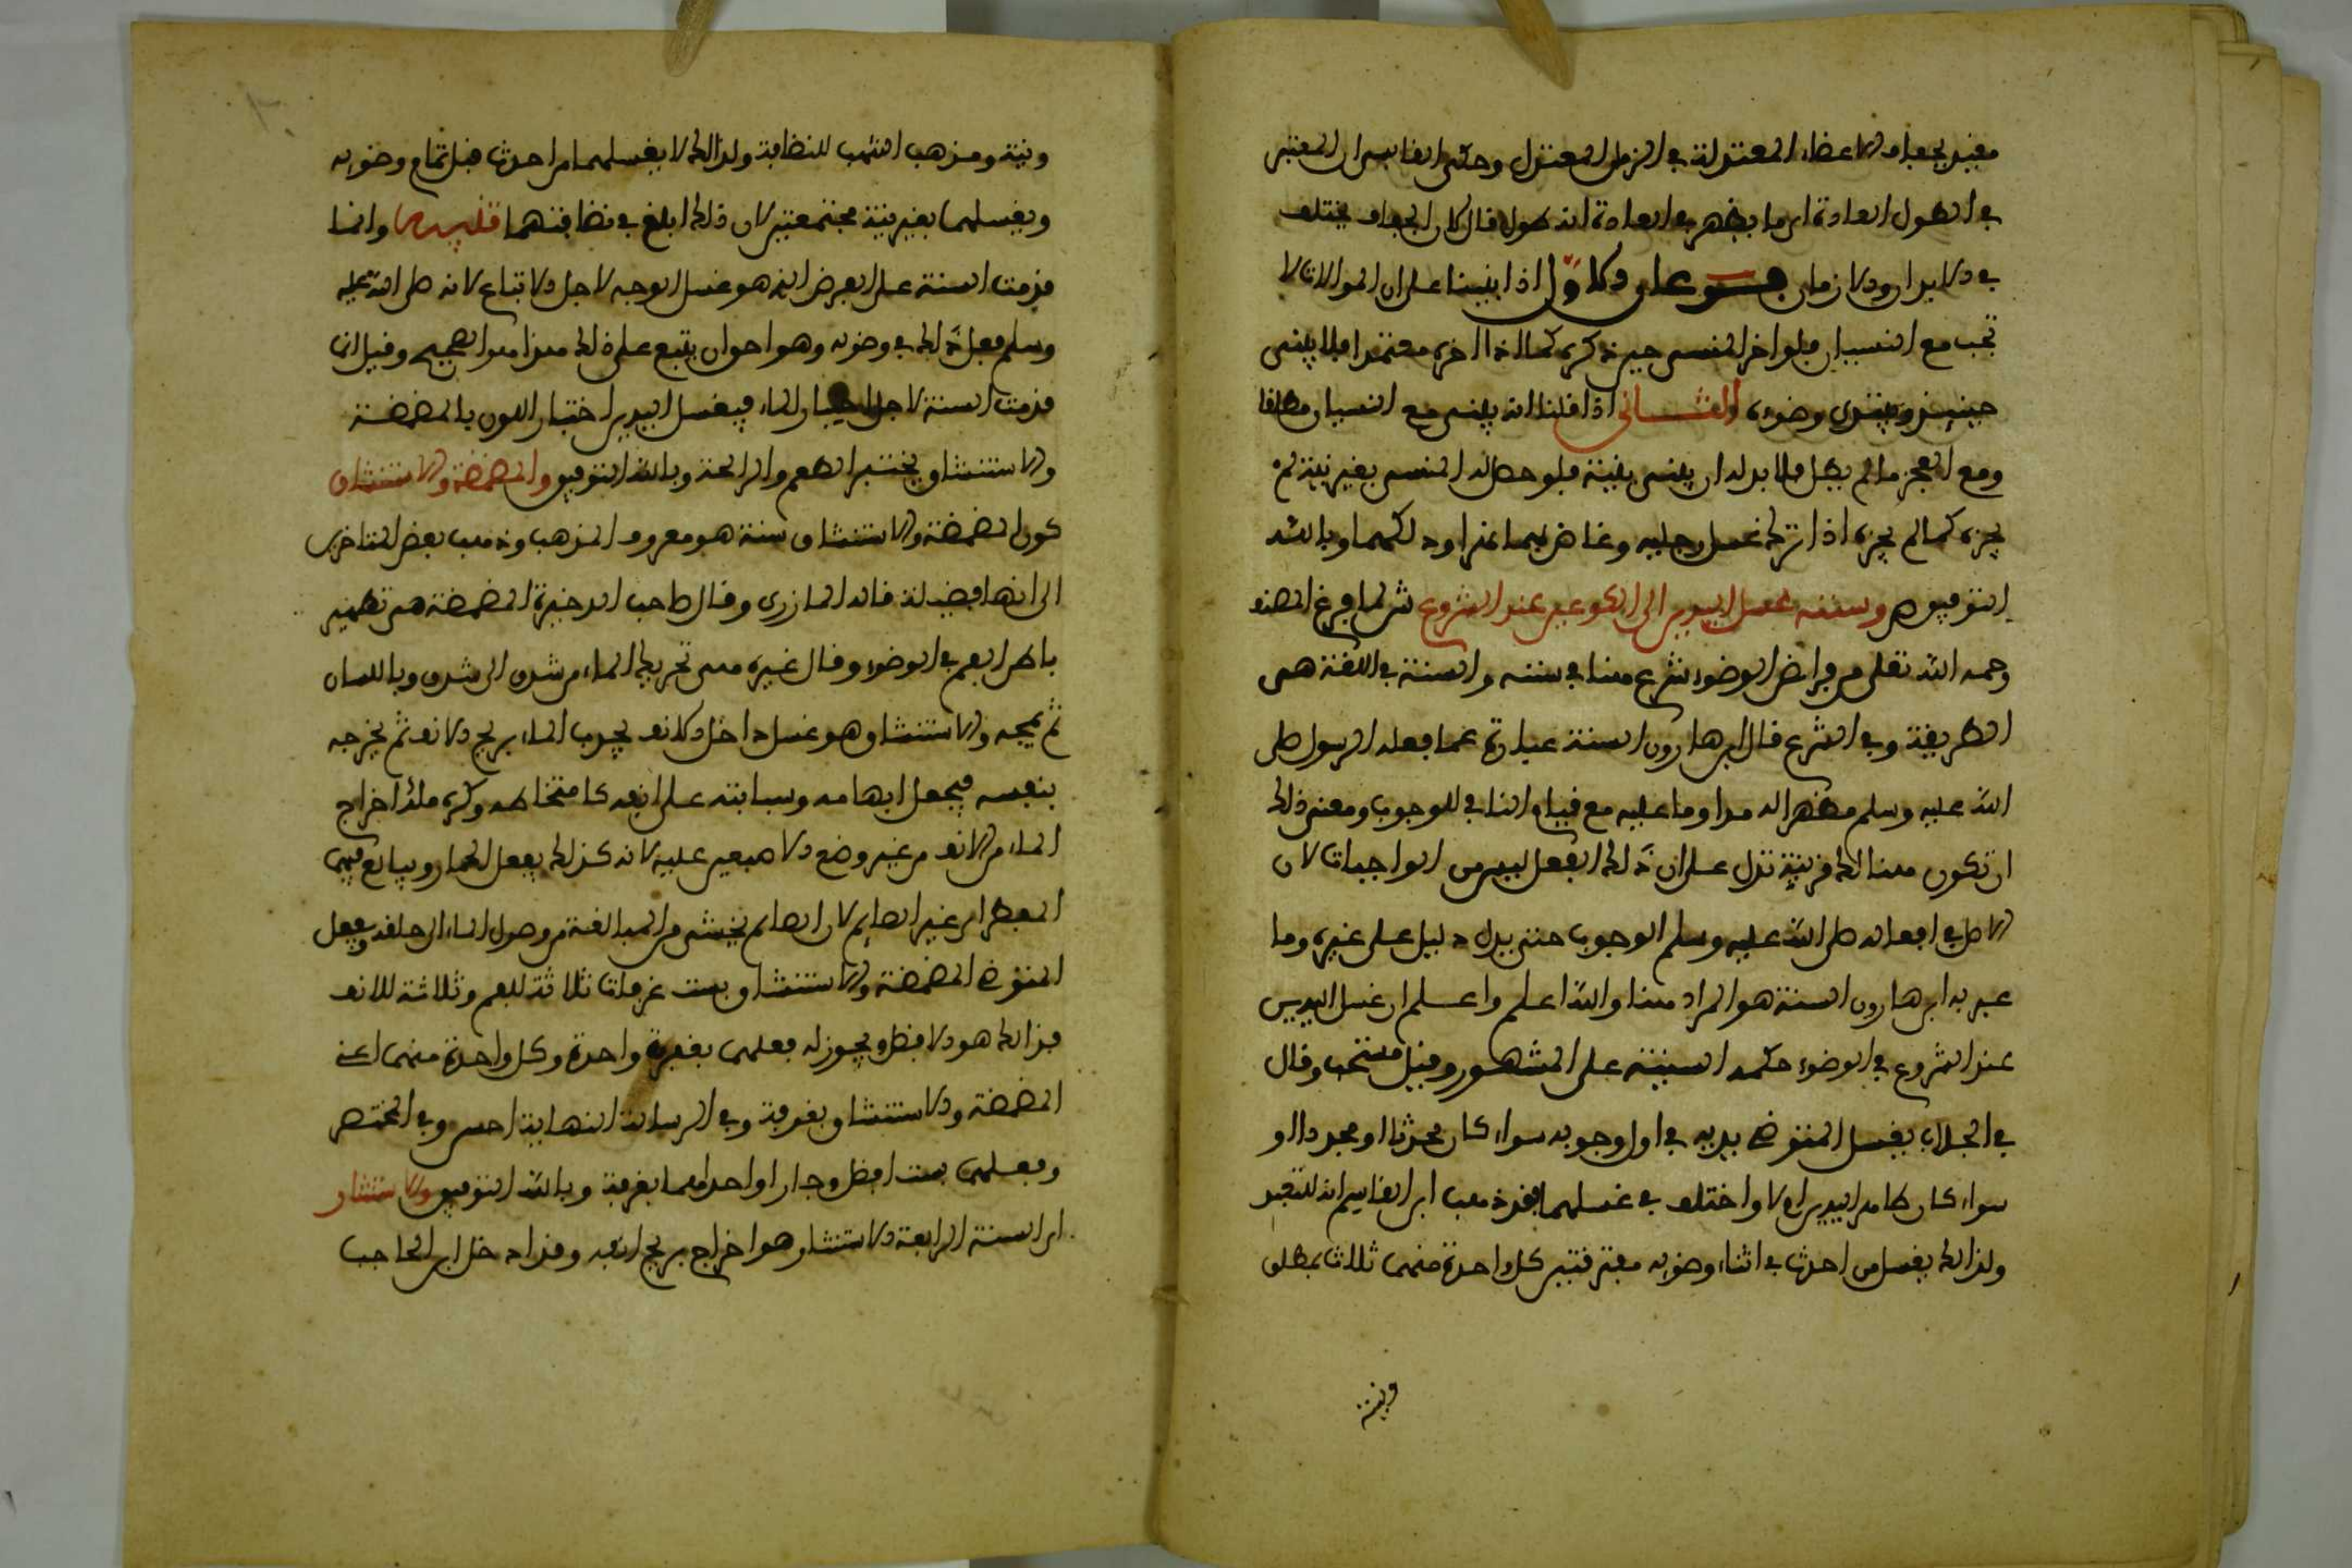 مقيد بجفاف الاعضاء المعتدلة في الزمان المعتدل وحكى الفا ان المعتبر
في الطول العادة اي ما يظهر في العادة انه طول قال لان الجفاف يختلف
في الابدان والازمان فرعان الاول اذا بنينا على ان الموالات لا
تجب مع النسيان فلو اخر المنسي حين ذكره كما اذا اخره معتمدا فلا يبني
حينئذ ويبتدي وضوءه والثاني اذا قلنا انه يبني مع النسيان مطلقا
ومع العجز ما لم يطل فلا بد له ان يبني بنية فلو حصل له المنسي بغير نية لم
يجزه كما لم يجزه اذا ترك غسل رجليه وخاض بهما نهرا ودلكهما وبالله
التوفيق ص وسننه غسل اليدين الى الكوعين عند الشروع ش لما فرغ المصنف
رحمه الله تعلى من فرائض الوضوء شرع هنا في سننه والسنة في اللغة هي
الطريقة وفي الشرع قال ابن هارون السنة عبارة عما فعله الرسول صلى
الله عليه وسلم مظهرا له مداوما عليه مع قيام النافي للوجوب ومعنى ذلك
ان تكون هنالك قرينة تدل على ان ذلك الفعل ليس من الواجبات لان
الاصل في افعاله صلى الله عليه وسلم الوجوب حتى يدل دليل على غيره وما
عبر به ابن هارون السنة هو المراد هنا والله اعلم واعلم ان غسل اليدين
عند الشروع في الوضوء حكمه السنية على المشهور وقيل مستحب وقال
في الجلاب يغسل المتوضئ يديه في اول وجوبه سواء كان محدثا او مجددا او
سواء كان طاهر اليدين ام لا واختلف في غسلهما فقد ذهب ابن القاسم انه للتعبد
ولذلك يغسل من احدث في اثناء وضوئه مفترقتين كل واحدة منهما ثلاث بمطلق
ونية
ونية ومذهب اشهب للنظافة ولذلك لا يغسلهما من احدث قبل تمام وضوئه
ويغسلهما بغير نية مجتمعتين لان ذلك ابلغ في نظافتهما تنبيه وانما
قدمت السنة على الفرض الذي هو غسل الوجه لاجل الاتباع لانه صلى الله عليه
وسلم فعل ذلك في وضوئه وهو احوال يتبع على ذلك هذا هو الصحيح وقيل انما
قدمت السنة لاجل اختبار الماء فيغسل اليدين اختبار اللون بالمضمضة
والاستنشاق يختبر الطعم والرائحة وبالله التوفيق والمضمضة والاستنشاق
كون المضمضة والاستنشاق سنة هو معروف المذهب وذهب بعض المتاخرين
الى انها فضيلة قاله المازري وقال صاحب الدخيرة المضمضة هي تطهير
باطن الفم في الوضوء وقال غيره هي تحريك الماء من شدق الى شدق وباللسان
ثم يمجه والاستنشاق هو غسل داخل الانف يجذب الماء بريح الانف ثم يخرجه
بنفسه فيجعل ابهامه وسبابته على انفه كامتخاطه وكره ملك اخراج
الماء من الانف من غير وضع الاصبعين عليه لانه كذلك يفعل الحمار ويبالغ فيهما
المفطر اي غير الصايم لان الصايم يخشى من المبالغة من وصول الماء الى حلقه ويفعل
المتوضئ المضمضة والاستنشاق بست غرفات ثلاثة للفم وثلاثة للانف
فذلك هو الافضل ويجوز له فعلهما بغرفة واحدة وكل واحدة منهما اعني
المضمضة والاستنشاق بغرفة وفي الرسالة النهاية احسن وفي المختصر
وفعلهما بست افضل وجازا او احداهما بغرفة وبالله التوفيق والاستنثار
اي السنة الرابعة الاستنثار هو اخراج بريح انفه وقد ادخل ابن الحاجب